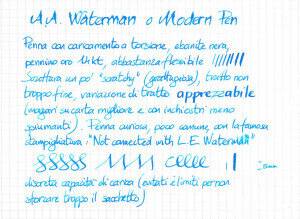 A.A. Waterman o Modern Pen
Penna con caricamento a torsione, ebanite nera,
pennino oro 14kt, abbastanza flessibile
Scrittura un po' "scratchy" (grattugiosa), tratto non
troppo fine, variazione di tratto apprezzabile
(magari su carta migliore e con inchiostri meno
spiumanti). Penna curiosa, poco comune, con la famosa
stampigliatura: "Not connected with L.E. Waterman"
discreta capacità di carica (evitati i limiti per non
sforzare troppo il sacchetto)